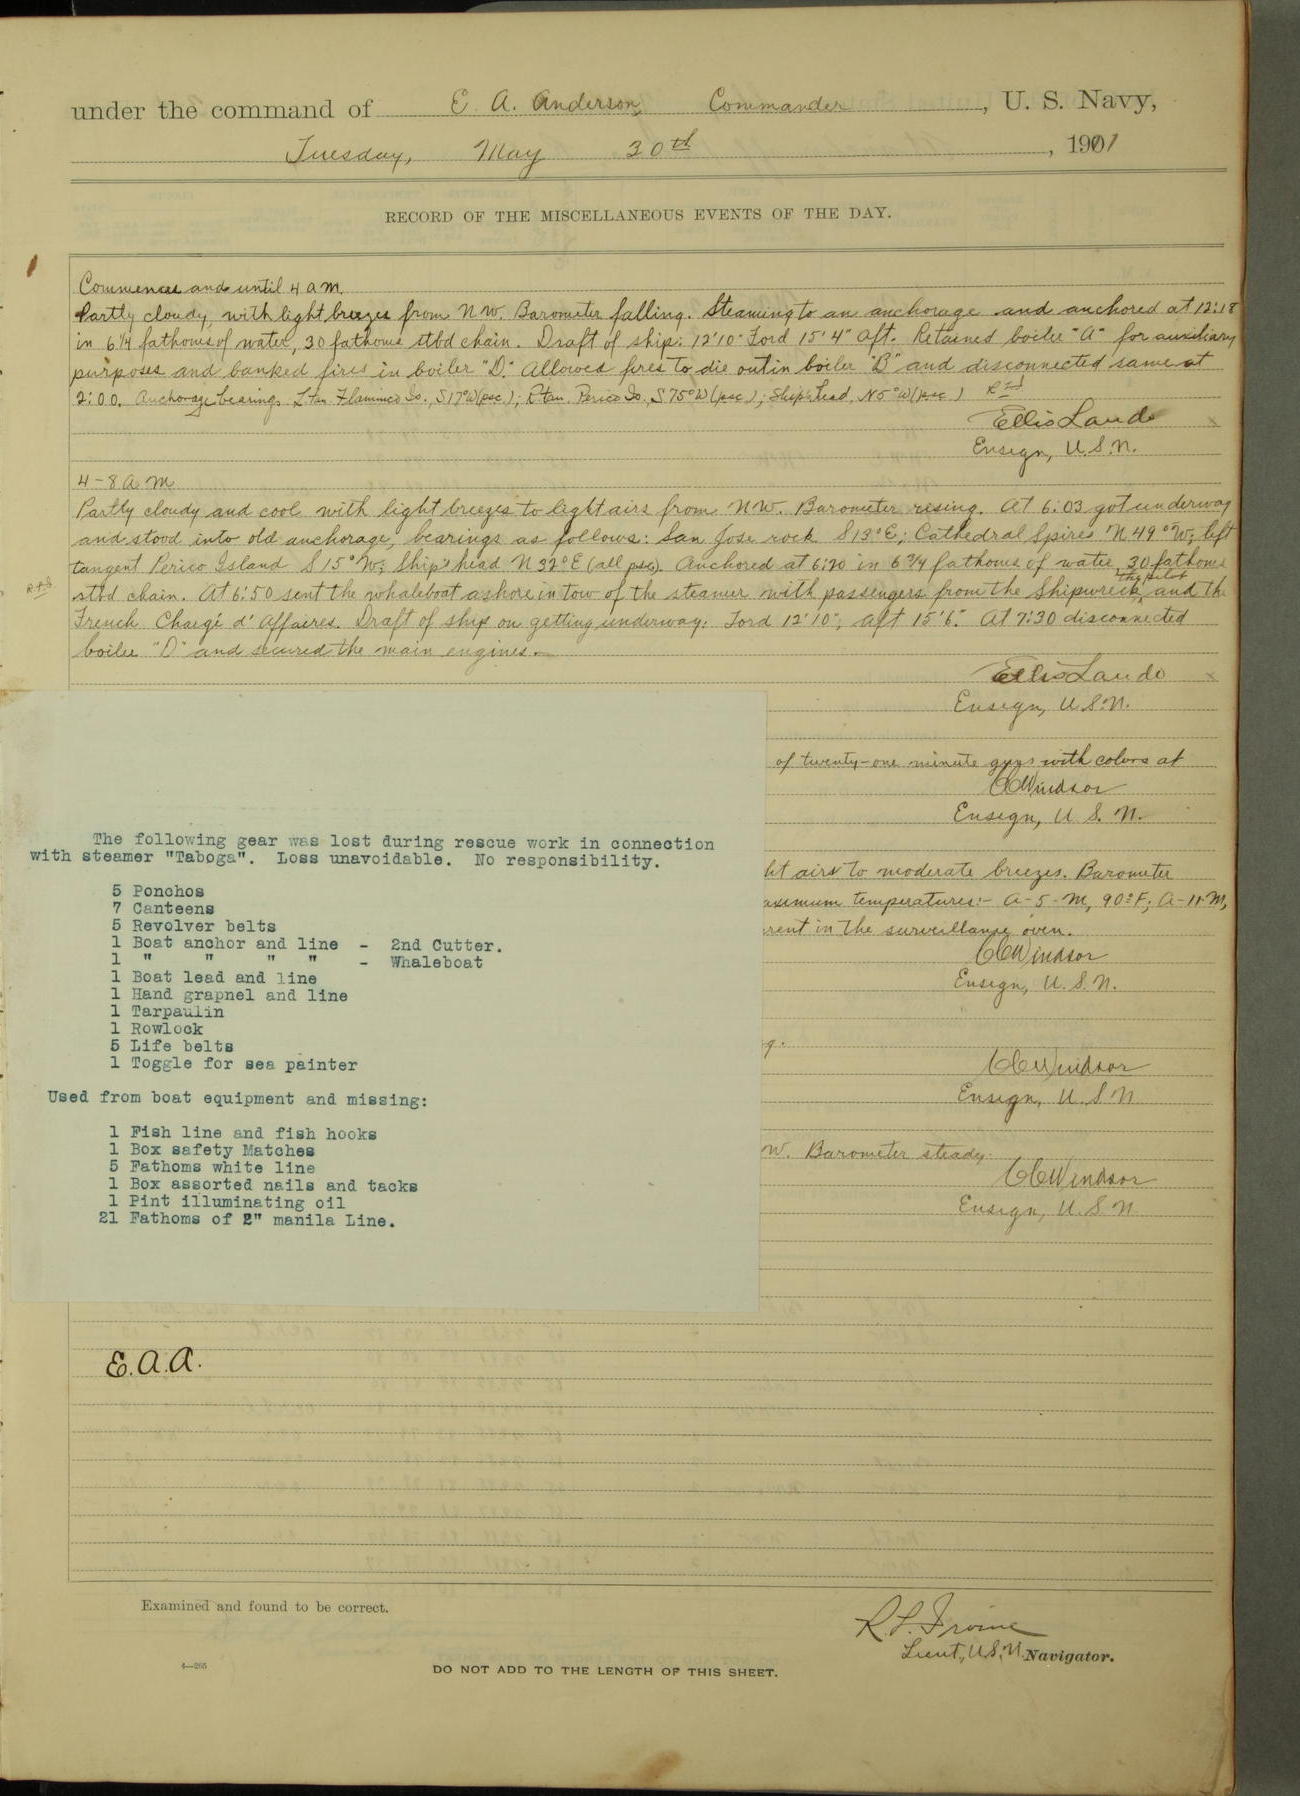 under the command of E. A. Anderson, Commander, U. S. Navy,
Tuesday, May 30th, 1911
RECORD OF THE MISCELLANEOUS EVENTS OF THE DAY.
Commences and until 4 a m.
Partly cloudy, with light breezes from NW. Barometer falling. Steaming to an anchorage and anchored at 12:18
in 6¼ fathoms of water, 30 fathoms stbd chain. Draft of ship: 12'10" Ford 15'4" aft. Retained boiler "A" for auxiliary
purposes and banked fires in boiler "D." Allowed fires to die out in boiler "B" and disconnected same at
2:00. Anchorage bearings L tan Flamenco Is., S17°W(psc); R tan. Perico Is., S75°W(psc); Ship's Head, N5°W(psc)
Ellis Lando
Ensign, U.S.N.
4-8 a m
Partly cloudy and cool with light breezes to light airs from NW. Barometer rising. At 6:03 got underway
and stood into old anchorage, bearings as follows: San Jose rock S13°E; Cathedral Spires N49°W; left
tangent Perico Island S15°W; Ship's head N32°E (all psc). Anchored at 6:20 in 6¾ fathoms of water, 30 fathoms
stbd chain. At 6:50 sent the whaleboat ashore in tow of the steamer with passengers from the Shipwreck, the pilot and the
French Chargé d'Affaires. Draft of ship on getting underway: Ford 12'10"; aft 15'6". At 7:30 disconnected
boiler "D" and secured the main engines.
Ellis Lando
Ensign, U.S.N.
of twenty-one minute guns with colors at
CCWindsor
Ensign, U.S.N.
The following gear was lost during rescue work in connection
with steamer "Taboga". Loss unavoidable. No responsibility.
5 Ponchos
7 Canteens
5 Revolver belts
1 Boat anchor and line - 2nd Cutter.
1 " " " " - Whaleboat
1 Boat lead and line
1 Hand grapnel and line
1 Tarpaulin
1 Rowlock
5 Life belts
1 Toggle for sea painter
Used from boat equipment and missing:
1 Fish line and fish hooks
1 Box safety Matches
5 Fathoms white line
1 Box assorted nails and tacks
1 Pint illuminating oil
21 Fathoms of 2" manila Line.
ht airs to moderate breezes. Barometer
aximum temperatures:- A-5-M, 90°F; A-11-M,
rent in the surveillance oven.
CCWindsor
Ensign, U.S.N.
g.
CCWindsor
Ensign, U.S.N
W. Barometer steady.
CCWindsor
Ensign, U.S.N
E.A.A.
Examined and found to be correct.
R.L. Irvine
Lieut, U.S.N. Navigator.
4—265
DO NOT ADD TO THE LENGTH OF THIS SHEET.